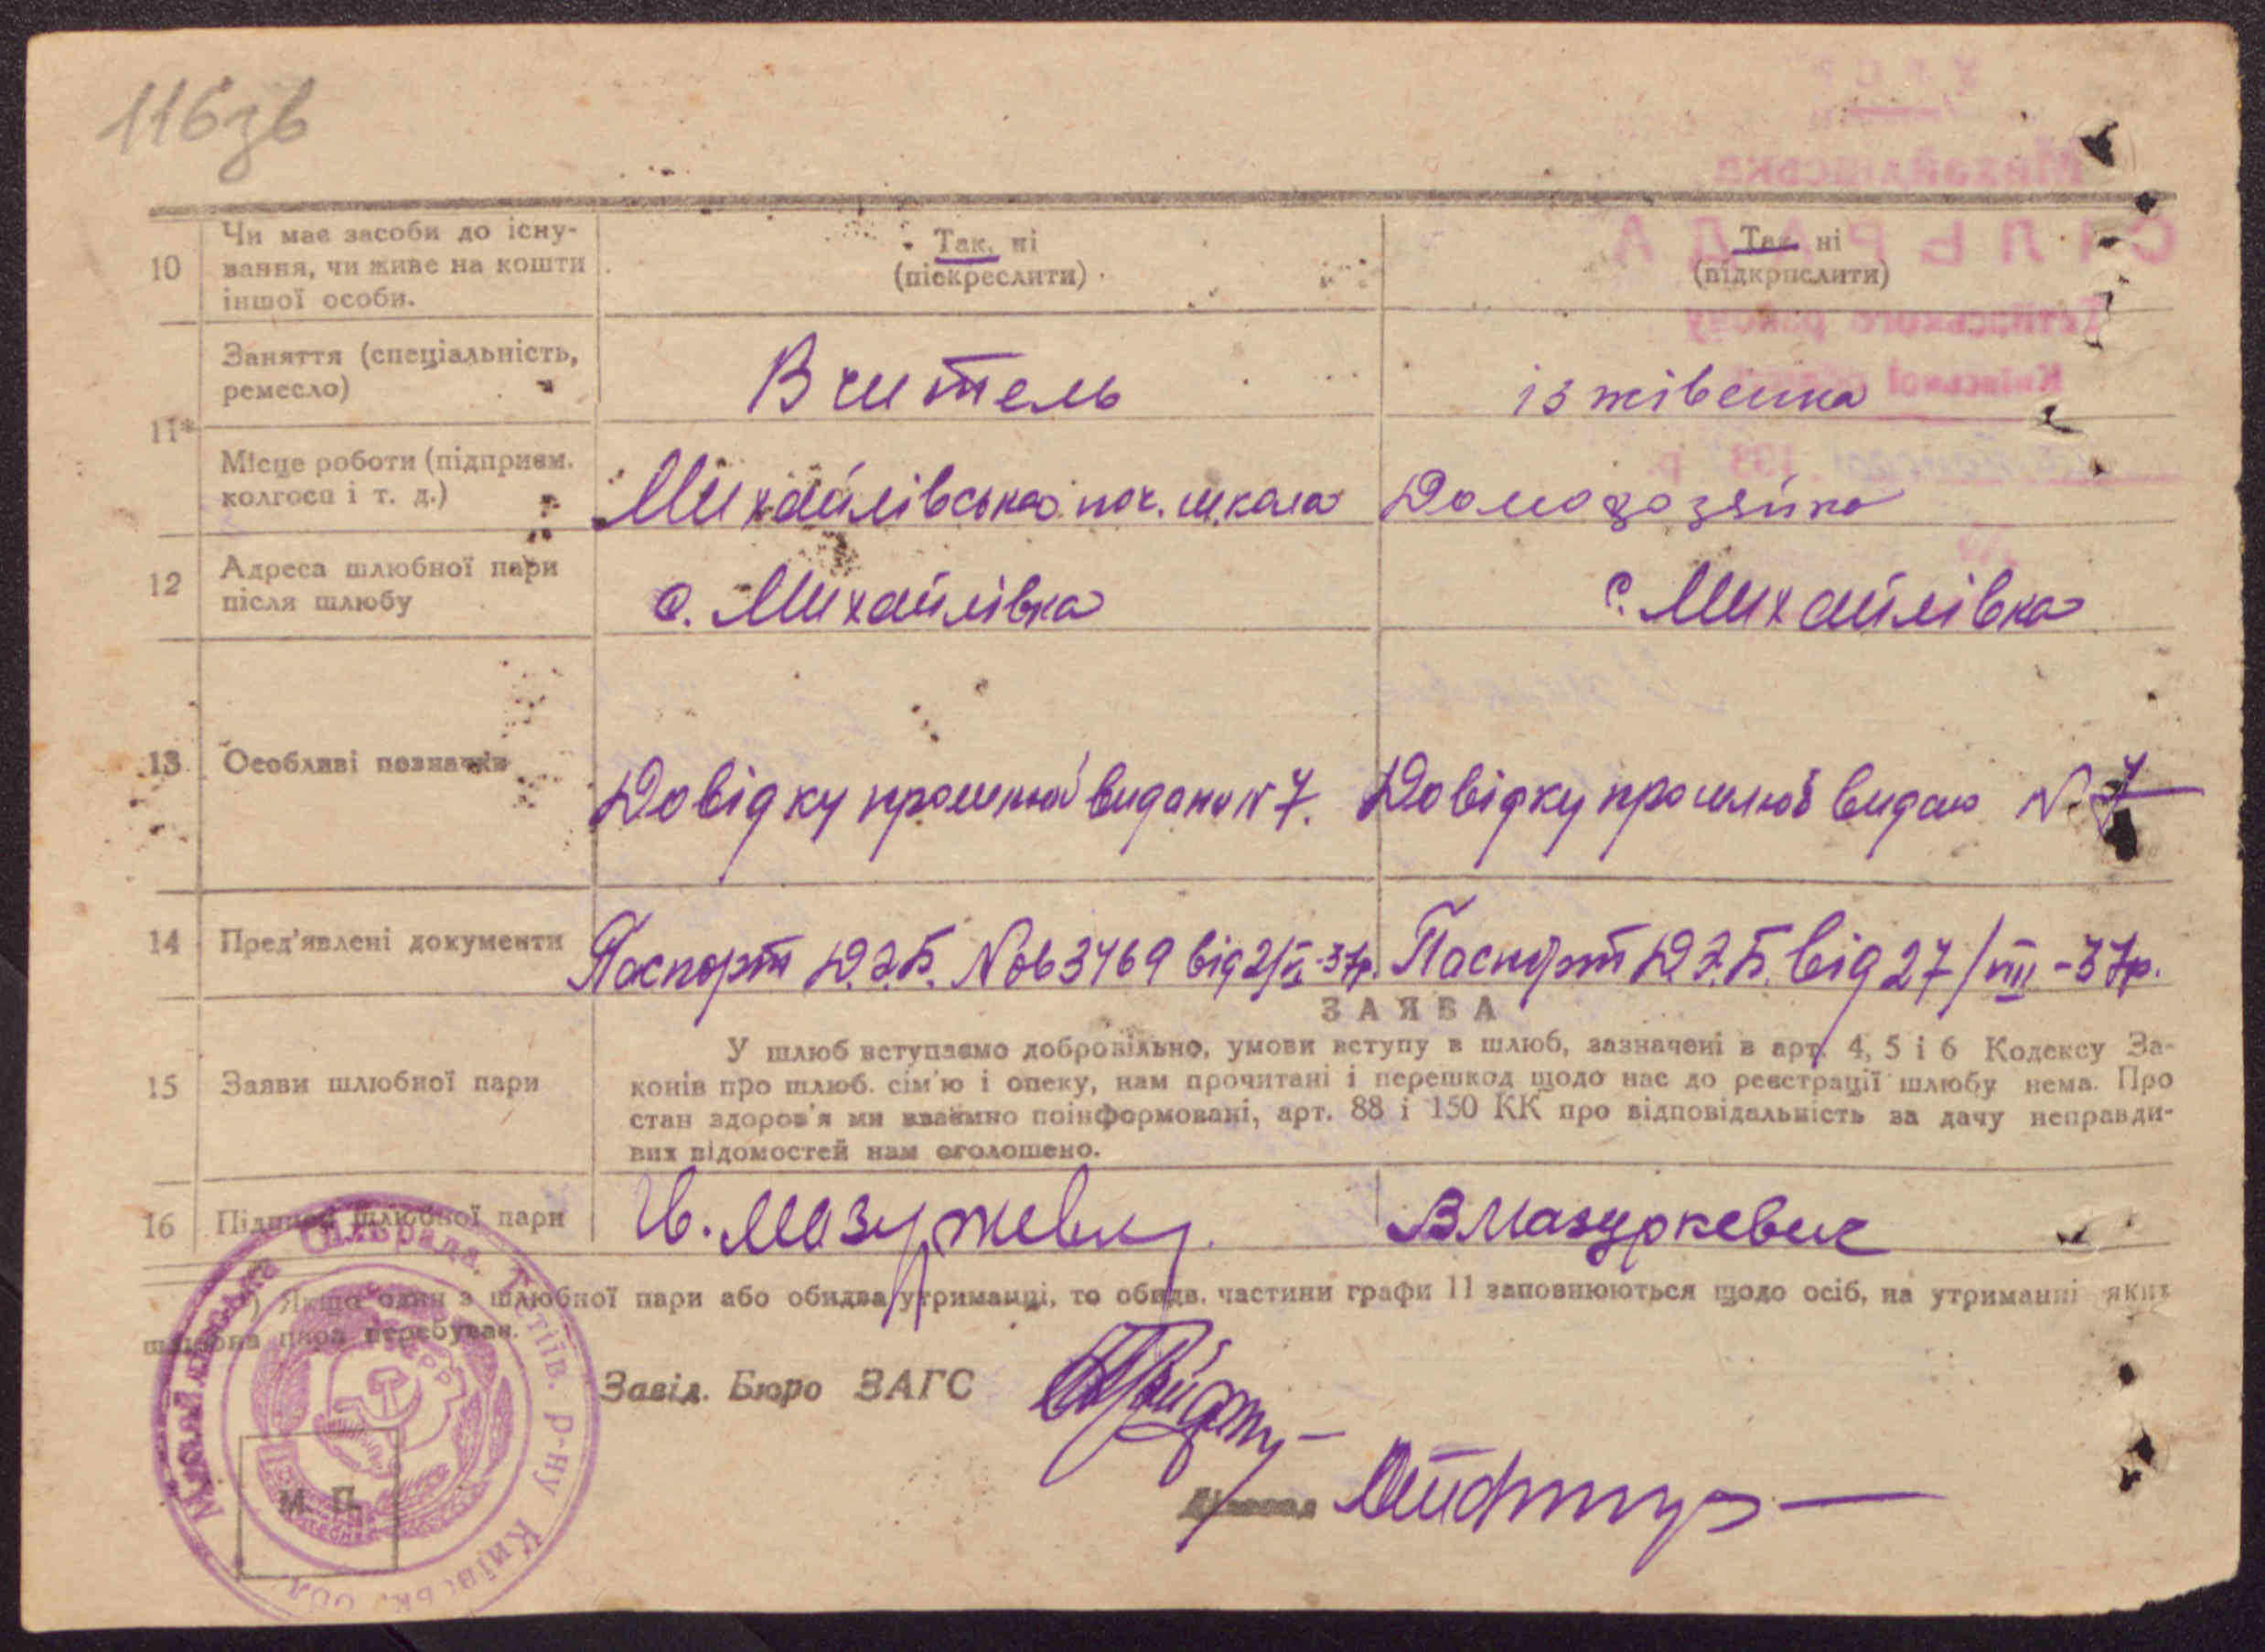 116зв
10 Чи має засоби до існу-
вання, чи живе на кошти
іншої особи.
Так, ні
(піскреслити)
Так ні
(підкрпслити)
11*
Заняття (спеціальність,
ремесло)
Вчитель
іждівенка
Місце роботи (підприєм.
колгосп і т. д.)
Михайлівська поч. школа
Домохозяйка
12 Адреса шлюбної пари
після шлюбу
с. Михайлівка
с. Михайлівка
13 Особливі позначки
Довідку про шлюб видано № 7.
Довідку про шлюб видано № 7
14 Пред'явлені документи
Паспорт Д.Э.Б. № 063469 від 2/VI-37р.
Паспорт Д.Э.Б. від 27/VIII-37р.
ЗАЯВА
15 Заяви шлюбної пари
У шлюб вступаємо добровільно, умови вступу в шлюб, зазначені в арт. 4, 5 і 6 Кодексу За-
конів про шлюб. сім'ю і опеку, нам прочитані і перешкод щодо нас до реєстрації шлюбу нема. Про
стан здоров'я ми взаємно поінформовані, арт. 88 і 150 КК про відповідальність за дачу неправди-
вих відомостей нам оголошено.
16 Підписи шлюбної пари
В Мазуркевич
*) Якщо один з шлюбної пари або обидва утриманці, то обидв. частини графи 11 заповнюються щодо осіб, на утриманні яких
шлюбна пара перебуває.
Завід. Бюро ЗАГС
Михайлівська Сільрада, Тетіїв. р-ну Київськ. обл.
УСРР
М. П.